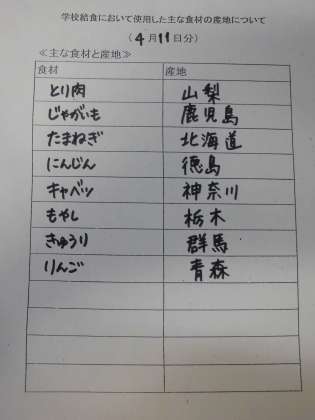 学校給食において使用した主な食材の産地について
(4月11日分)
≪主な食材と産地≫
食材 産地
とり肉 山梨
じゃがいも 鹿児島
たまねぎ 北海道
にんじん 徳島
キャベツ 神奈川
もやし 栃木
きゅうり 群馬
りんご 青森